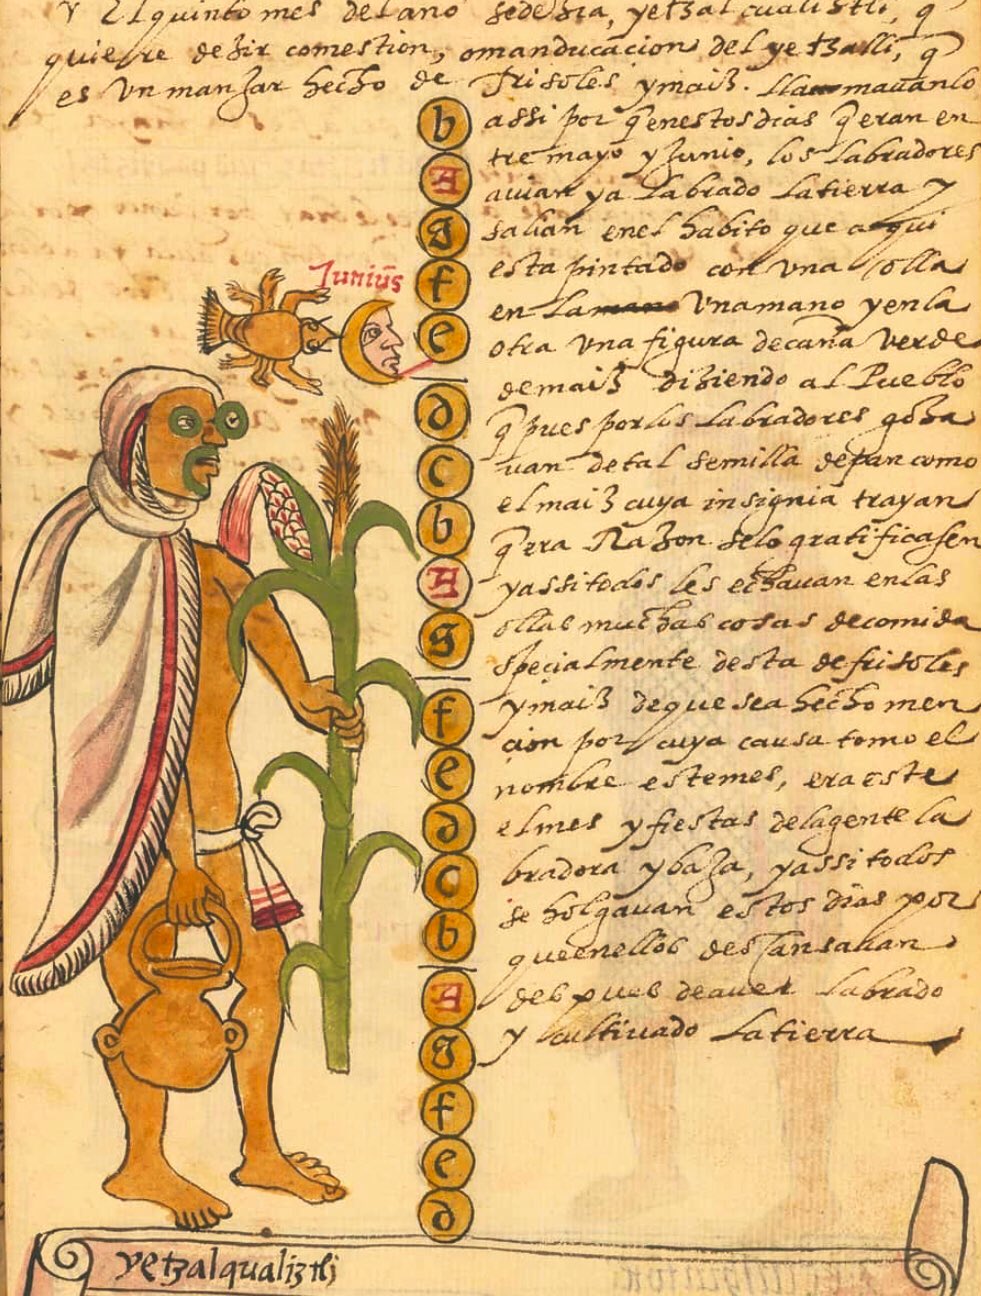 Y El quinto mes del año sedezia, yetzalcualiztli, q̃
quierre dezir comestion, omanducacion del yetzalli, q̃
es vn manjar hecho de frisoles y maiz. llamauanlo
assi por q̃ enestos dias q̃ eran en
tre mayo y Junio, los labradores
auian ya labrado latierra y
salian enel habito que aqui
esta pintado con vna olla
en la vnamano yenla
otra vna figura decaña verde
de maiz diziendo al Pueblo
q̃ pues por los labradores goza
uan detal semilla depan como
el maiz cuya insignia trayan
q̃ era Razon selo gratificasen
yassitodos les echauan enlas
ollas muchas cosas decomida
specialmente desta defrisoles
ymaiz dequesea hecho men
cion por cuya causa tomo el
nombre estemes, eraeste
elmes yfiestas delagente la
bradora ybaja, yassi todos
se holgauan estos dias por
queenellos descansauan
despues deauer labrado
y cultiuado latierra
Junius
b
A
g
f
e
d
c
b
A
g
f
e
d
c
b
A
g
f
e
d
yetzalqualiztli